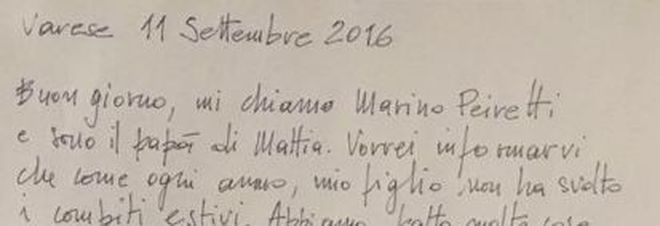 Varese 11 Settembre 2016
Buon giorno, mi chiamo Marino Peiretti
e sono il papà di Mattia. Vorrei informarvi
che come ogni anno, mio figlio non ha svolto
i compiti estivi. Abbiamo fatto molte cose